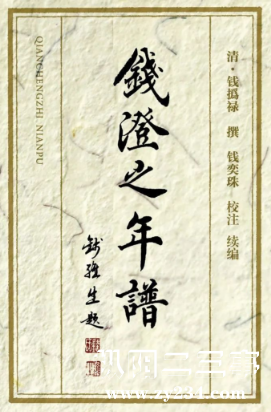 清·钱撝禄 撰 钱奕珠 校注 续编
錢澄之年譜
生題
QIANCHENGZHI NIANPU